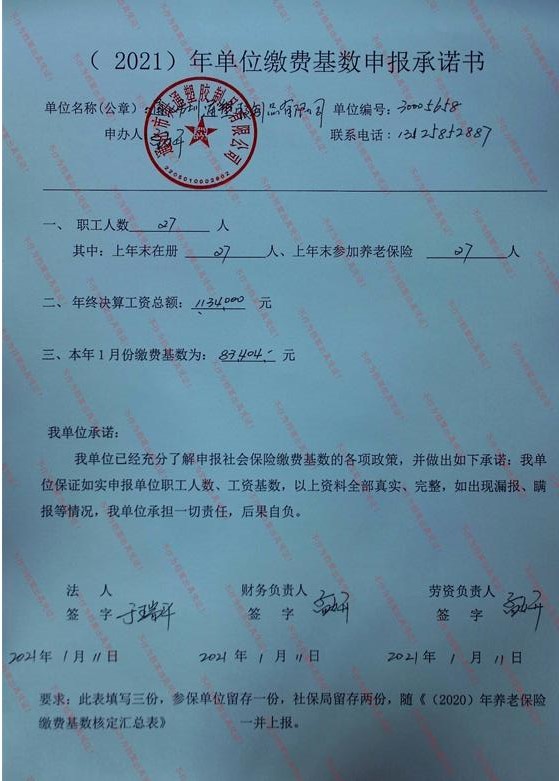 （ 2021）年单位缴费基数申报承诺书
单位名称(公章)： 单位编号：30005658
申办人 联系电话：13125852887
2205010003802
一、 职工人数 27 人
其中：上年末在册 27 人、上年末参加养老保险 27 人
二、 年终决算工资总额：1134000 元
三、本年1月份缴费基数为：83404.- 元
我单位承诺：
我单位已经充分了解申报社会保险缴费基数的各项政策，并做出如下承诺：我单
位保证如实申报单位职工人数、工资基数，以上资料全部真实、完整，如出现漏报、瞒
报等情况，我单位承担一切责任，后果自负。
法 人 财务负责人 劳资负责人
签 字 于瑞祥 签 字 签 字
2021年 1月 11日 2021年 1月 11日 2021年 1月 11日
要求：此表填写三份，参保单位留存一份，社保局留存两份，随《（2020）年养老保险
缴费基数核定汇总表》 一并上报。